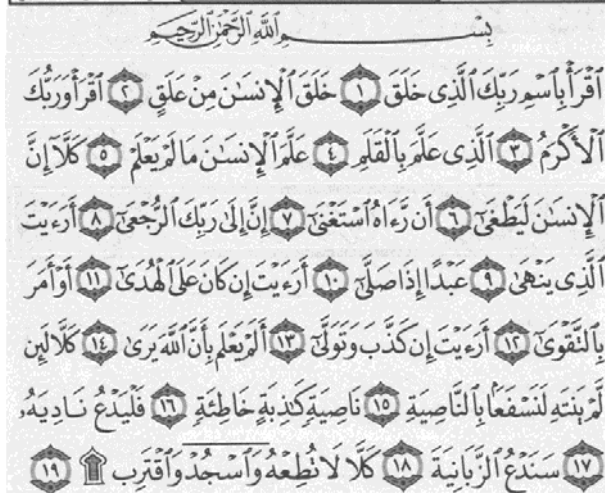 بِسْمِ اللَّهِ الرَّحْمَٰنِ الرَّحِيمِ
ٱقْرَأْ بِٱسْمِ رَبِّكَ ٱلَّذِى خَلَقَ ١ خَلَقَ ٱلْإِنسَٰنَ مِنْ عَلَقٍ ٢ ٱقْرَأْ وَرَبُّكَ
ٱلْأَكْرَمُ ٣ ٱلَّذِى عَلَّمَ بِٱلْقَلَمِ ٤ عَلَّمَ ٱلْإِنسَٰنَ مَا لَمْ يَعْلَمْ ٥ كَلَّآ إِنَّ
ٱلْإِنسَٰنَ لَيَطْغَىٰٓ ٦ أَن رَّءَاهُ ٱسْتَغْنَىٰٓ ٧ إِنَّ إِلَىٰ رَبِّكَ ٱلرُّجْعَىٰٓ ٨ أَرَءَيْتَ
ٱلَّذِى يَنْهَىٰ ٩ عَبْدًا إِذَا صَلَّىٰٓ ١٠ أَرَءَيْتَ إِن كَانَ عَلَى ٱلْهُدَىٰٓ ١١ أَوْ أَمَرَ
بِٱلتَّقْوَىٰٓ ١٢ أَرَءَيْتَ إِن كَذَّبَ وَتَوَلَّىٰٓ ١٣ أَلَمْ يَعْلَم بِأَنَّ ٱللَّهَ يَرَىٰ ١٤ كَلَّا لَئِن
لَّمْ يَنتَهِ لَنَسْفَعًۢا بِٱلنَّاصِيَةِ ١٥ نَاصِيَةٍ كَٰذِبَةٍ خَاطِئَةٍ ١٦ فَلْيَدْعُ نَادِيَهُۥ
١٧ سَنَدْعُ ٱلزَّبَانِيَةَ ١٨ كَلَّا لَا تُطِعْهُ وَٱسْجُدْ وَٱقْتَرِب ۩ ١٩